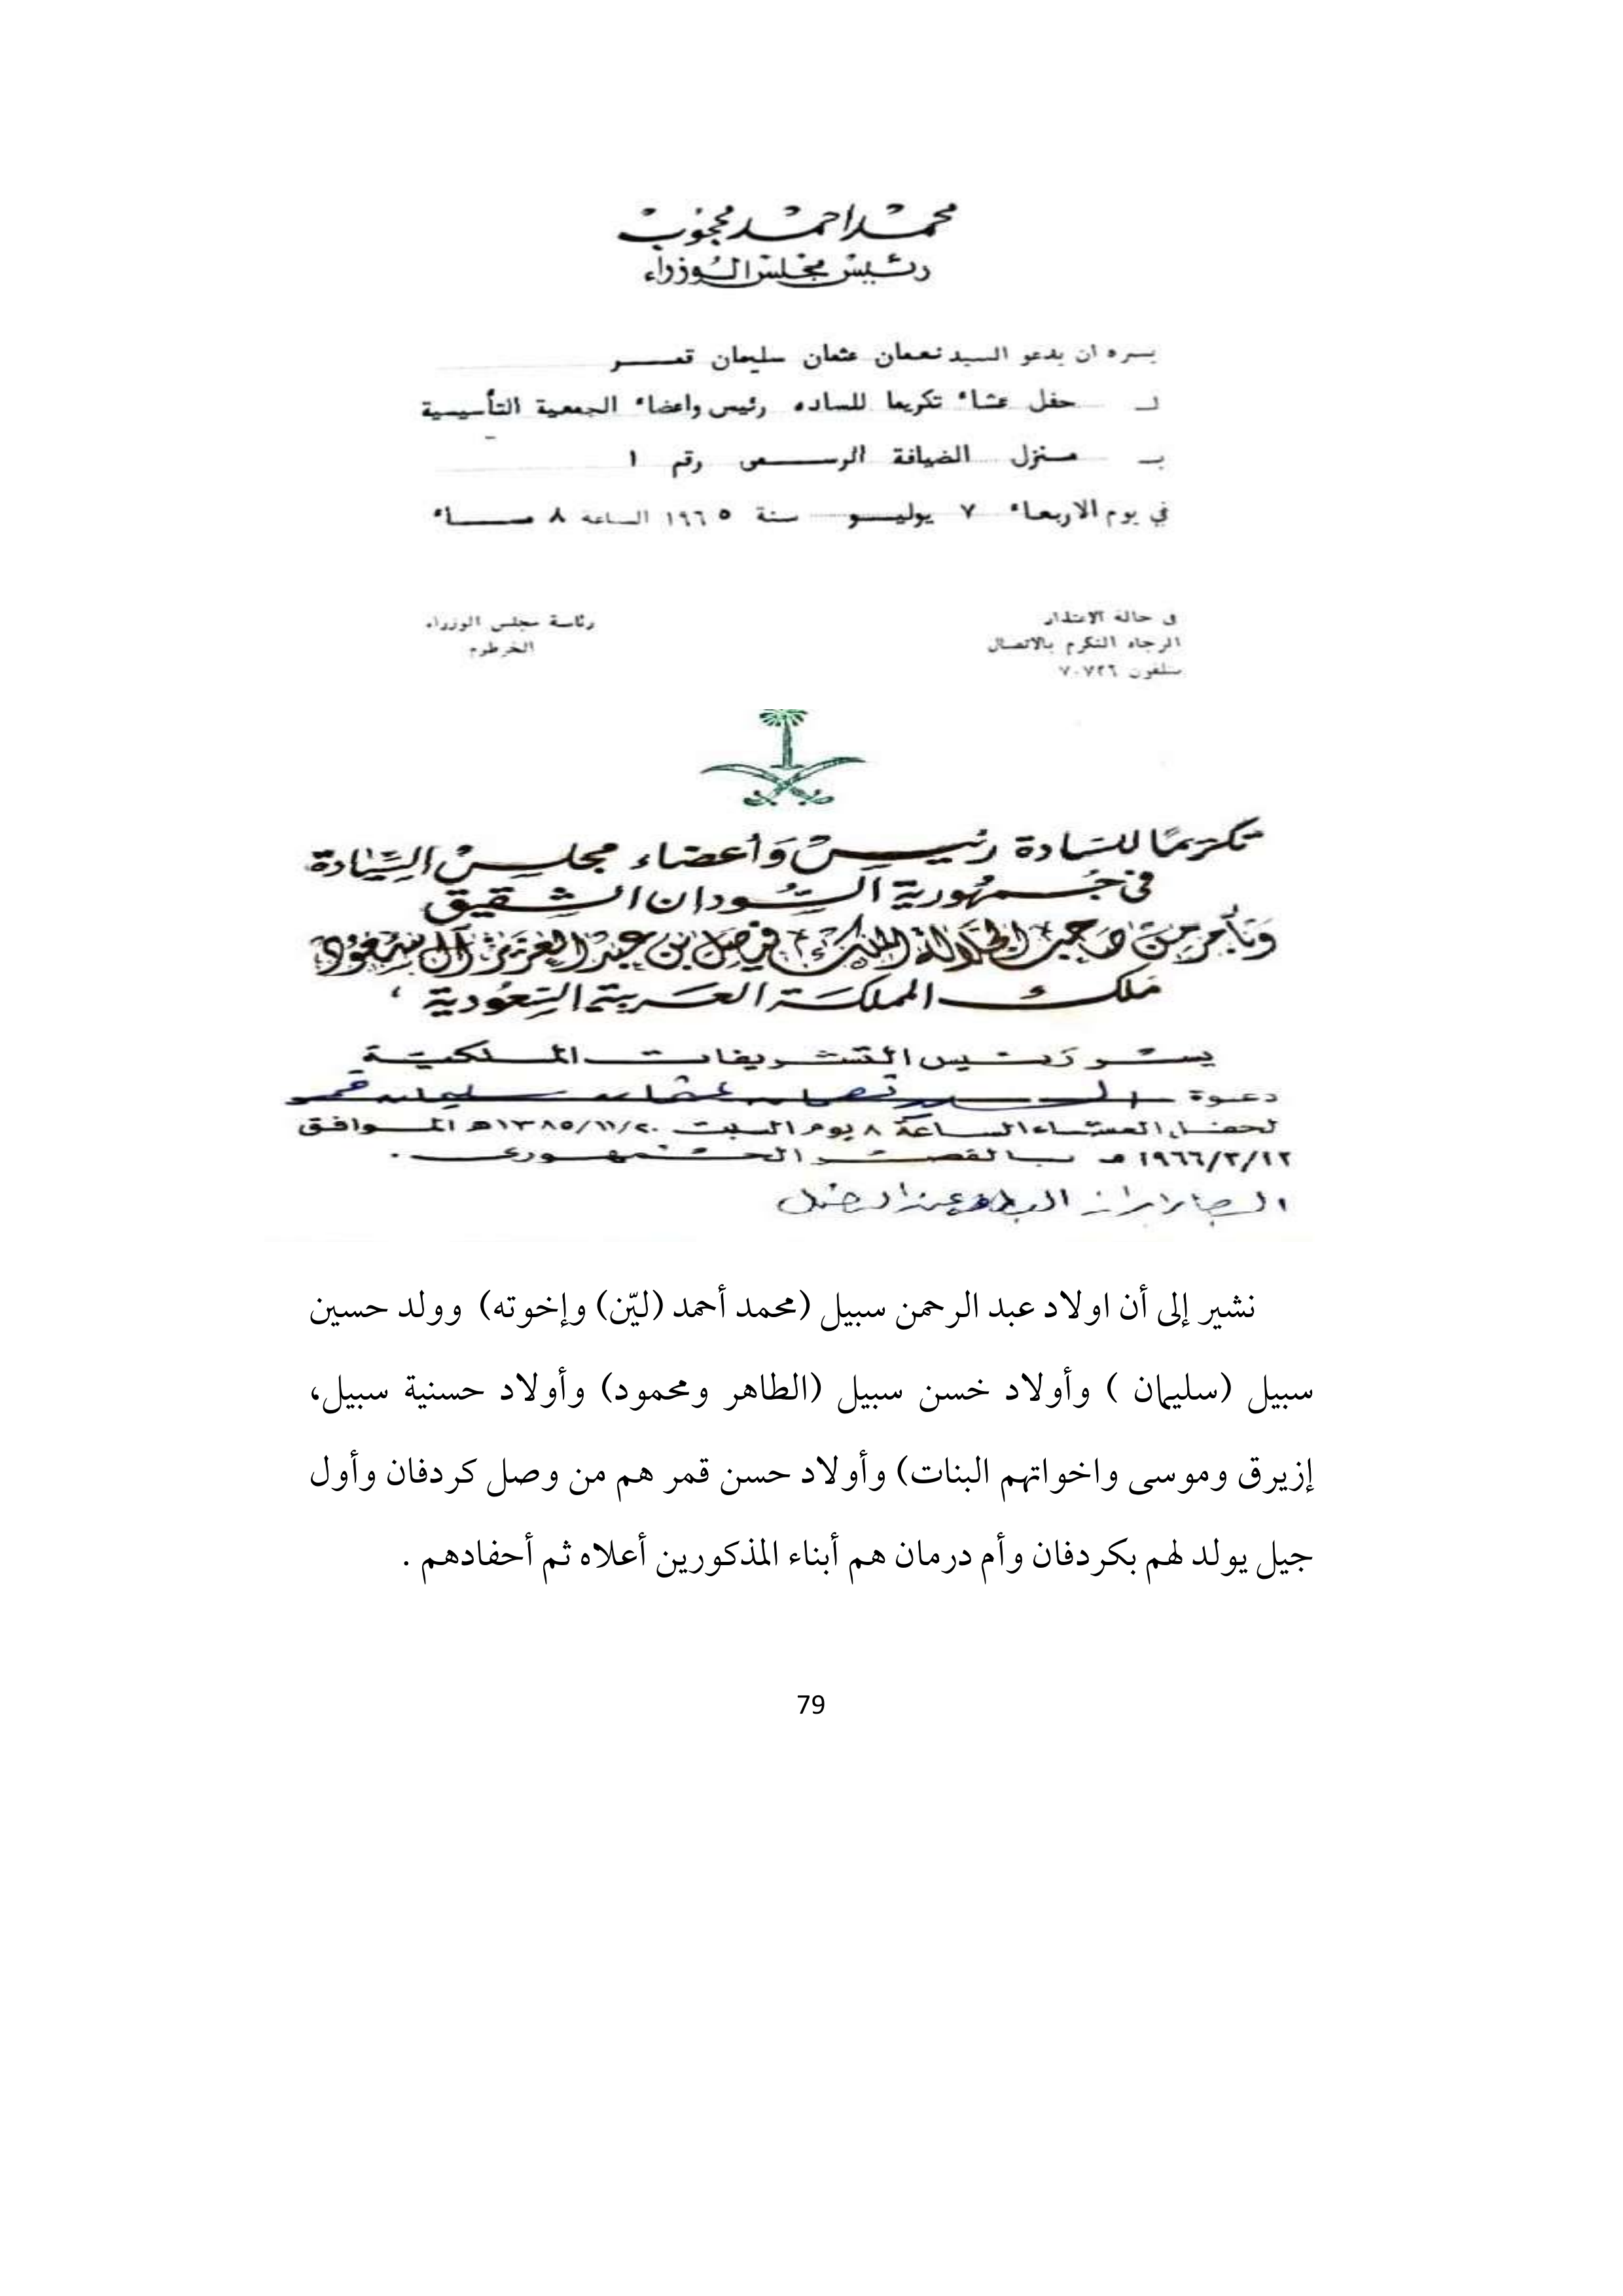 محمد احمد محجوب
رئيس مجلس الوزراء
يسره ان يدعو السيد نعمان عثمان سليمان قمر
لـ حفل عشاء تكريما للساده رئيس واعضاء الجمعية التأسيسية
بـ منزل الضيافة الرسمى رقم ١
في يوم الاربعاء ٧ يوليو سنة ١٩٦٥ الساعة ٨ مساء
فى حالة الاعتذار
الرجاء التكرم بالاتصال
بتلفون ٧٠٧٢٦
رئاسة مجلس الوزراء
الخرطوم
تكريمًا للسادة رئيس وأعضاء مجلس السيادة
في جمهورية السودان الشقيق
وبأمر من صاحب الجلالة الملك فيصل بن عبد العزيز آل سعود
ملك المملكة العربية السعودية ،
يسر رئيس التشريفات الملكية
دعوة السيد نعمان عثمان سليمان قمر
لحفل العشاء الساعة ٨ يوم السبت ١٣٨٥/١١/٢٠هـ الموافق
١٩٦٦/٣/١٢م بالقصر الجمهورى .
الرجاء ابراز البطاقة عند الدخول
نشير إلى أن اولاد عبد الرحمن سبيل (محمد أحمد (ليّن) وإخوته) وولد حسين
سبيل (سليمان ) وأولاد خسن سبيل (الطاهر ومحمود) وأولاد حسنية سبيل،
إزيرق وموسى واخواتهم البنات) وأولاد حسن قمر هم من وصل كردفان وأول
جيل يولد لهم بكردفان وأم درمان هم أبناء المذكورين أعلاه ثم أحفادهم .
79